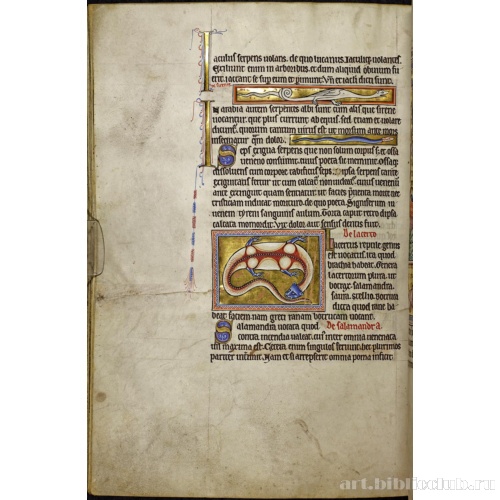 Iaculus serpens uolans. de quo lucanus. Iaculiq; uolantes.
Exiliunt enim in arboribus. et dum aliquid obuium fu
erit. iactant se sup eum et perimunt. Vn et iaculi dicti sunt.
In arabia autem serpentes albi sunt cum alis que sirene
uocantur. que plus currunt ab equis. sed etiam et uolare
dicunt. quorum tantum uirus est ut morsum ante mors
insequatur qm dolor.
Seps exigua serpens que non solum corpus s; et ossa
ueneno consumit. cuius poeta sic meminit. Ossaq;
dissoluens cum corpore tabificus seps. Dipsa serpens
exiguitatis fertur ut cum calcatur non uideatur. cuius ueneni
ante extinguit quam sentiatur. ut facies preuenta morte nec
tristiciam induat morituro. de quo poeta. Signiferum iu
uenem tyrreni sanguinis aulum. Torta caput retro dipsa
calcata momordit. Vix dolor aut sensus dentis fuit.
De lacerto
Lacertus reptile genus
est uocatus. ita quod
brachia habeat. Genera
lacertorum plura. ut
botrax. salamandra.
saura. stellio. Botrax
dicta quod rane ha
beat faciem. nam greci ranam botrucam uocant.
De salamandra
Salamandra uocata quod
contra incendia ualeat. cuius inter omnia uenenata
uis maxima est. Cetera enim singulos feriunt. hec plurimos
pariter interimit. Nam et si arrepserit omnia poma inficit.
art.biblioclub.ru